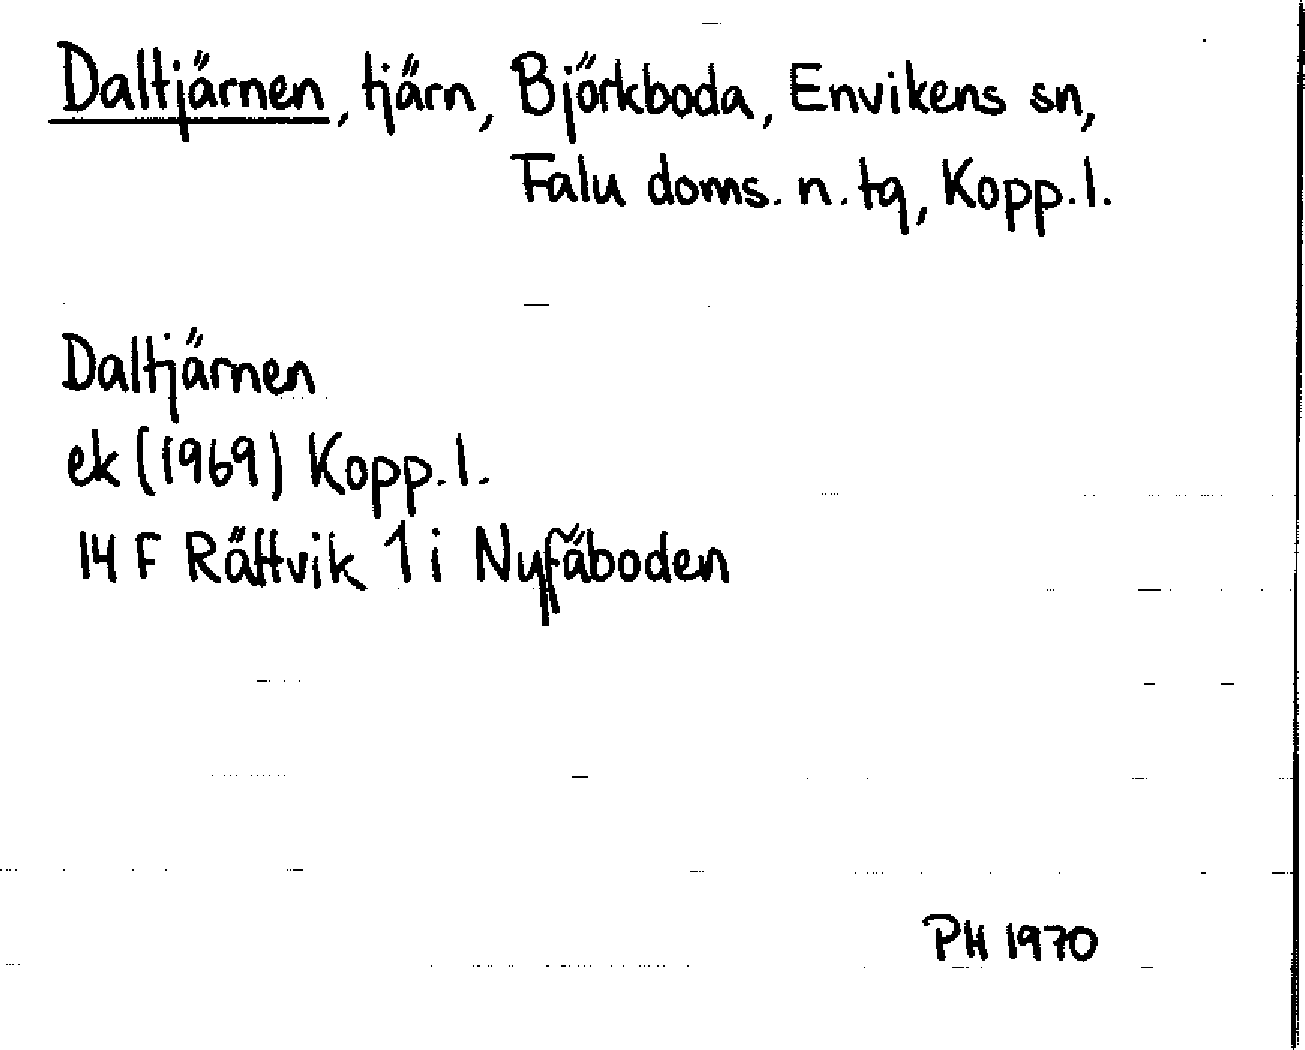 Daltjärnen, tjärn, Björkboda, Envikens sn,
Falu doms. n. tg, Kopp. l.
Daltjärnen
ek (1969) Kopp. l.
14 F Rättvik 1 i Nyfäboden
PH 1970